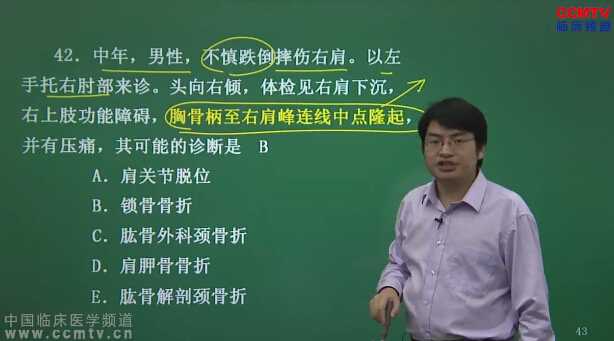 CCMTV
临床频道
42．中年，男性，不慎跌倒摔伤右肩。以左
手托右肘部来诊。头向右倾，体检见右肩下沉，
右上肢功能障碍，胸骨柄至右肩峰连线中点隆起，
并有压痛，其可能的诊断是 B
A．肩关节脱位
B．锁骨骨折
C．肱骨外科颈骨折
D．肩胛骨骨折
E．肱骨解剖颈骨折
中国临床医学频道
www.ccmtv.cn
43